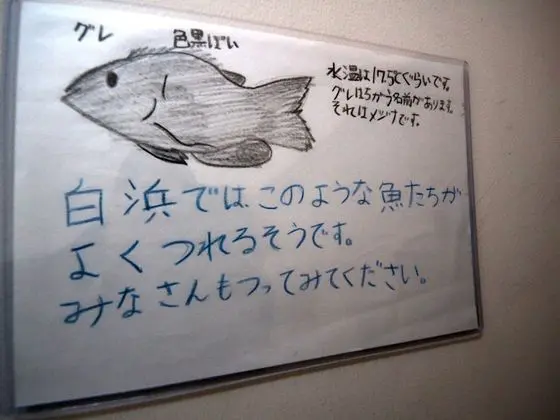 グレ
色黒ぽい
水温は17.5℃ぐらいです。
グレはちがう名前があります。
それはメジナです。
白浜では、このような魚たちが
よくつれるそうです。
みなさんもつってみてください。